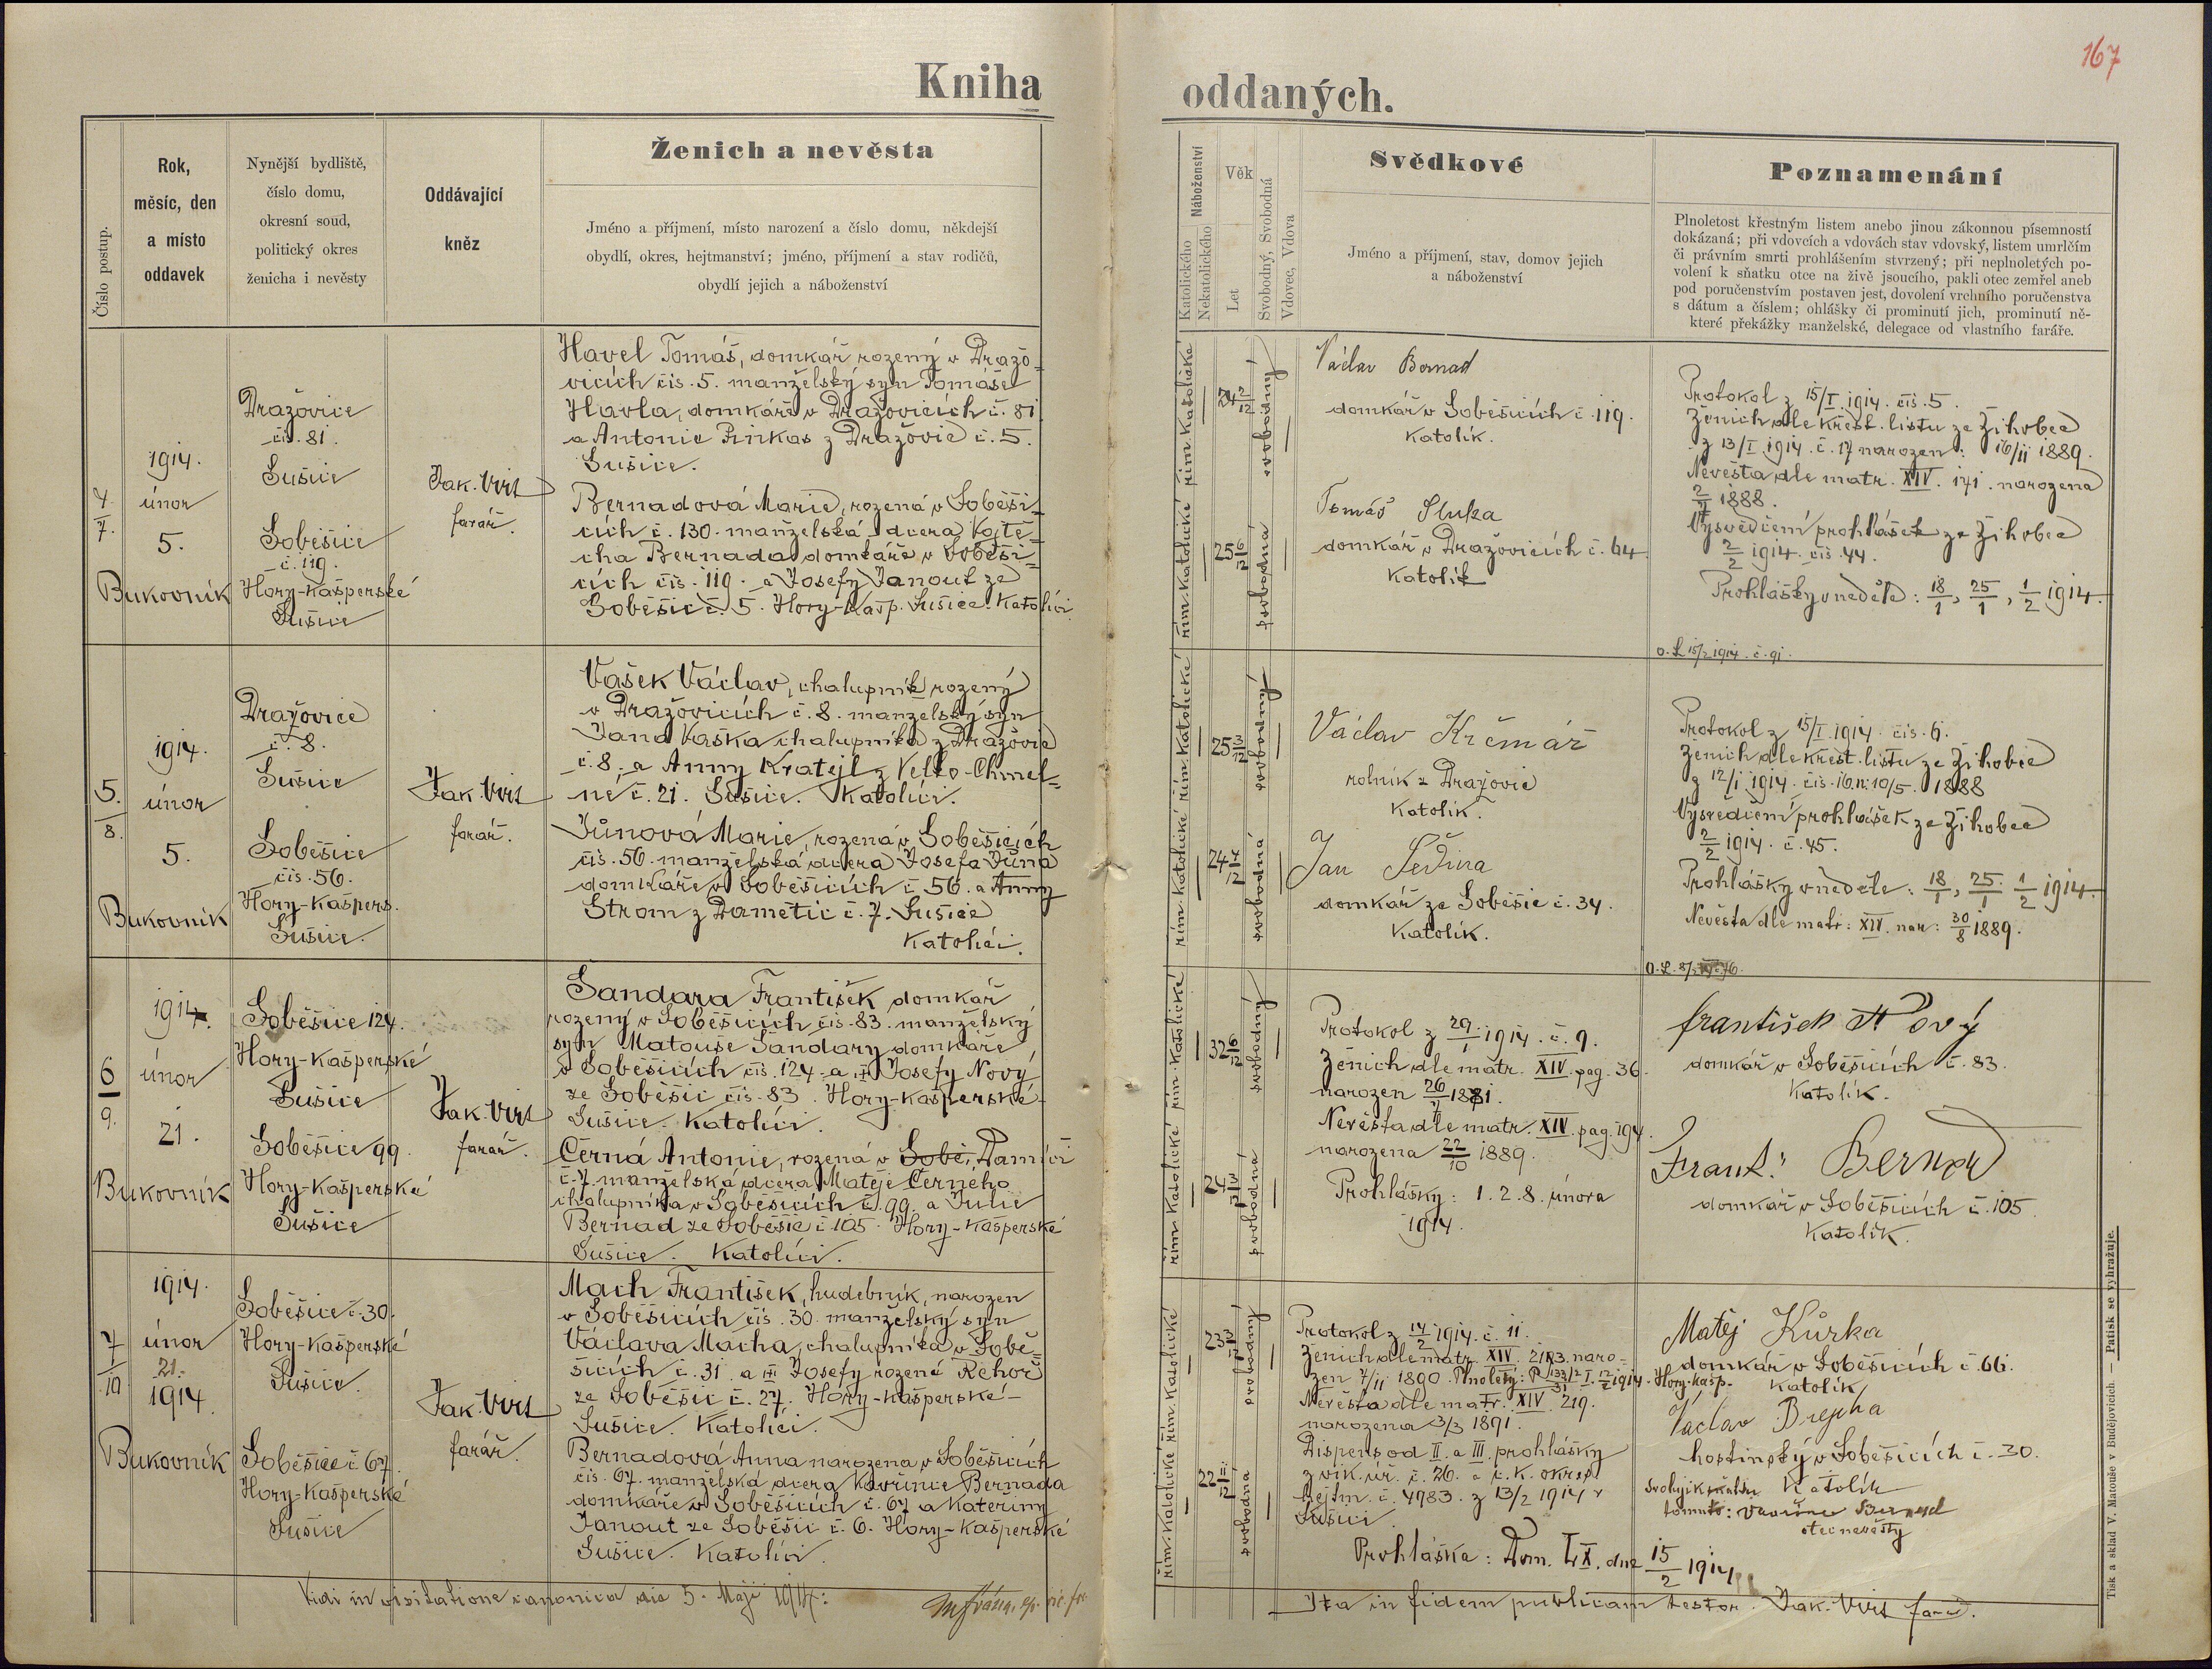 167
Kniha oddaných.
Číslo postup.
Rok,
měsíc, den
a místo
oddavek
Nynější bydliště,
číslo domu,
okresní soud,
politický okres
ženicha i nevěsty
Oddávající
kněz
Ženich a nevěsta
Jméno a příjmení, místo narození a číslo domu, někdejší
obydlí, okres, hejtmanství; jméno, příjmení a stav rodičů,
obydlí jejich a náboženství
Náboženství
Katolického
Nekatolického
Věk
Let
Svobodný, Svobodná
Vdovec, Vdova
Svědkové
Jméno a příjmení, stav, domov jejich
a náboženství
Poznamenání
Plnoletost křestným listem anebo jinou zákonnou písemností
dokázaná; při vdovcích a vdovách stav vdovský, listem umrlčím
či právním smrti prohlášením stvrzený; při neplnoletých po-
volení k sňatku otce na živě jsoucího, pakli otec zemřel aneb
pod poručenstvím postaven jest, dovolení vrchního poručenstva
s dátum a číslem; ohlášky či prominutí jich, prominutí ně-
které překážky manželské, delegace od vlastního faráře.
4
7.
1914.
únor
5.
Bukovník
Dražovice
čís. 81.
Sušice
Soběšice
č. 119.
Hory-Kašperské
Sušice
Jak. Virt
farář.
Havel Tomáš, domkář rozený v Dražo-
vicích čís. 5. manželský syn Tomáše
Havla, domkáře v Dražovicích č. 81
a Antonie Pinkas z Dražovic č. 5.
Sušice.
Bernadová Marie, rozená v Soběši-
cích č. 130. manželská dcera Vojtě-
cha Bernada domkáře v Soběši-
cích čís. 119. a Josefy Janout ze
Soběšic č. 5. Hory-Kašp. Sušice. Katolíci.
řím. katolické
24 2/12
svobodný
řím. katolické
25 6/12
svobodná
Václav Bernad
domkář v Soběšicích č. 119.
Katolík.
Tomáš Sluka
domkář v Dražovicích č. 64
Katolík
Protokol z 15/I. 1914. čís. 5.
Ženich dle křest. listu ze Žihobec
z 13/I. 1914. č. 17 narozen: 16/11 1889.
Nevěsta dle matr. XIV. 171. narozena
1888.
Vysvědčení prohlášek ze Žihobec
2/2 1914. čís. 44.
Prohlášky v neděle: 18/1, 25/1, 1/2 1914.
5.
8.
1914.
únor
5.
Bukovník
Dražovice
č. 8.
Sušice
Soběšice
čís. 56.
Hory-Kašpers.
Sušice.
Jak. Virt
farář.
Vašek Václav, chalupník rozený
v Dražovicích č. 8. manželský syn
Jana Vaška chalupníka z Dražovic
č. 8. a Anny Kratejl z Velko-Chmel-
né č. 21. Sušice. Katolíci.
Jůnová Marie, rozená v Soběšicích
čís. 56. manželská dcera Josefa Jůna
domkáře v Soběšicích č. 56. a Anny
Strom z Damětic č. 7. Sušice
Katolíci.
řím. katolické
25 3/12
svobodný
řím. katolické
24 7/12
svobodná
Václav Krčmář
rolník z Dražovic
Katolík.
Jan Šedina
domkář ze Soběšic č. 34.
Katolík.
o. L. 15/2 1914. č. 91.
Protokol z 15/I. 1914. čís. 6.
Ženich dle křest. listu ze Žihobec
z 12/I 1914. čís. 16. n. 10/5. 1888
Vysvědčení prohlášek ze Žihobec
2/2 1914. č. 45.
Prohlášky v neděle: 18/1, 25/1. 1/2 1914.
Nevěsta dle matr: XIV. nar: 30/8 1889.
6
9.
1914.
únor
21.
Bukovník
Soběšice 124.
Hory-Kašperské
Sušice
Soběšice 99.
Hory-Kašperské
Sušice
Jak. Virt
farář.
Šandara František domkář
rozený v Soběšicích čís. 83. manželský
syn Matouše Šandary domkáře
v Soběšicích čís. 124. a Josefy Nový
ze Soběšic čís. 83. Hory-Kašperské
Sušice. Katolíci.
Černá Antonie, rozená v Sobě, Damíči
č. 7. manželská dcera Matěje Černého
chalupníka v Soběšicích č. 99. a Julie
Bernad ze Soběšic č. 105. Hory-Kašperské
Sušice. Katolíci.
řím. katolické
32 6/12
svobodný
řím. katolické
24 3/12
svobodná
Protokol z 29/1 1914. č. 9.
Ženich dle matr. XIV. pag. 36.
narozen 26/7 1881.
Nevěsta dle matr. XIV. pag. 194.
narozena 22/10 1889.
Prohlášky: 1. 2. 8. února
1914.
František Nový
domkář v Soběšicích č. 83.
Katolík.
Frant. Bernad
domkář v Soběšicích č. 105.
Katolík.
7
10
1914.
únor
21.
1914.
Bukovník
Soběšice č. 30.
Hory-Kašperské
Sušice.
Soběšice č 67.
Hory-Kašperské
Sušice
Jak. Virt
farář.
Mach František, hudebník, narozen
v Soběšicích čís. 30. manželský syn
Václava Macha, chalupníka v Sobě-
šicích č. 31. a Josefy rozené Řehoř
ze Soběšic č. 27. Hory-Kašperské-
Sušice. Katolíci.
Bernadová Anna narozena v Soběšicích
čís. 67. manželská dcera Vavřince Bernada
domkáře v Soběšicích č. 67 a Kateřiny
Janout ze Soběšic č. 6. Hory-Kašperské
Sušice. Katolíci.
řím. katolické
23 3/12
svobodný
řím. katolické
22 11/12
svobodná
Protokol z 14/2 1914. č. 11.
Ženich dle matr. XIV. naro-
zen 7/11 1890. Plnoletý: 1914. Hory-Kašp.
Nevěsta dle matr. XIV. 219.
narozena 3/3 1891.
Dispens od II. a III. prohlášky
z vik. úř. č. 26. a c. k. okres.
hejtm. č. 4983. z 13/2 1914 v
Sušici.
Prohláška: Dom. LX. dne 15/2 1914.
Matěj Kůrka
domkář v Soběšicích č. 66.
Katolík
Václav Brejcha
hostinský v Soběšicích č. 30.
Katolík
Svoluji k
tomuto: Vavřinec Bernad
otec nevěsty
Vidi in visitatione canonica die 5. Maji 1914:
Ita in fidem publicam testor. Jak. Virt farář.
Tisk a sklad V. Matouše v Budějovicích. — Patisk se vyhražuje.